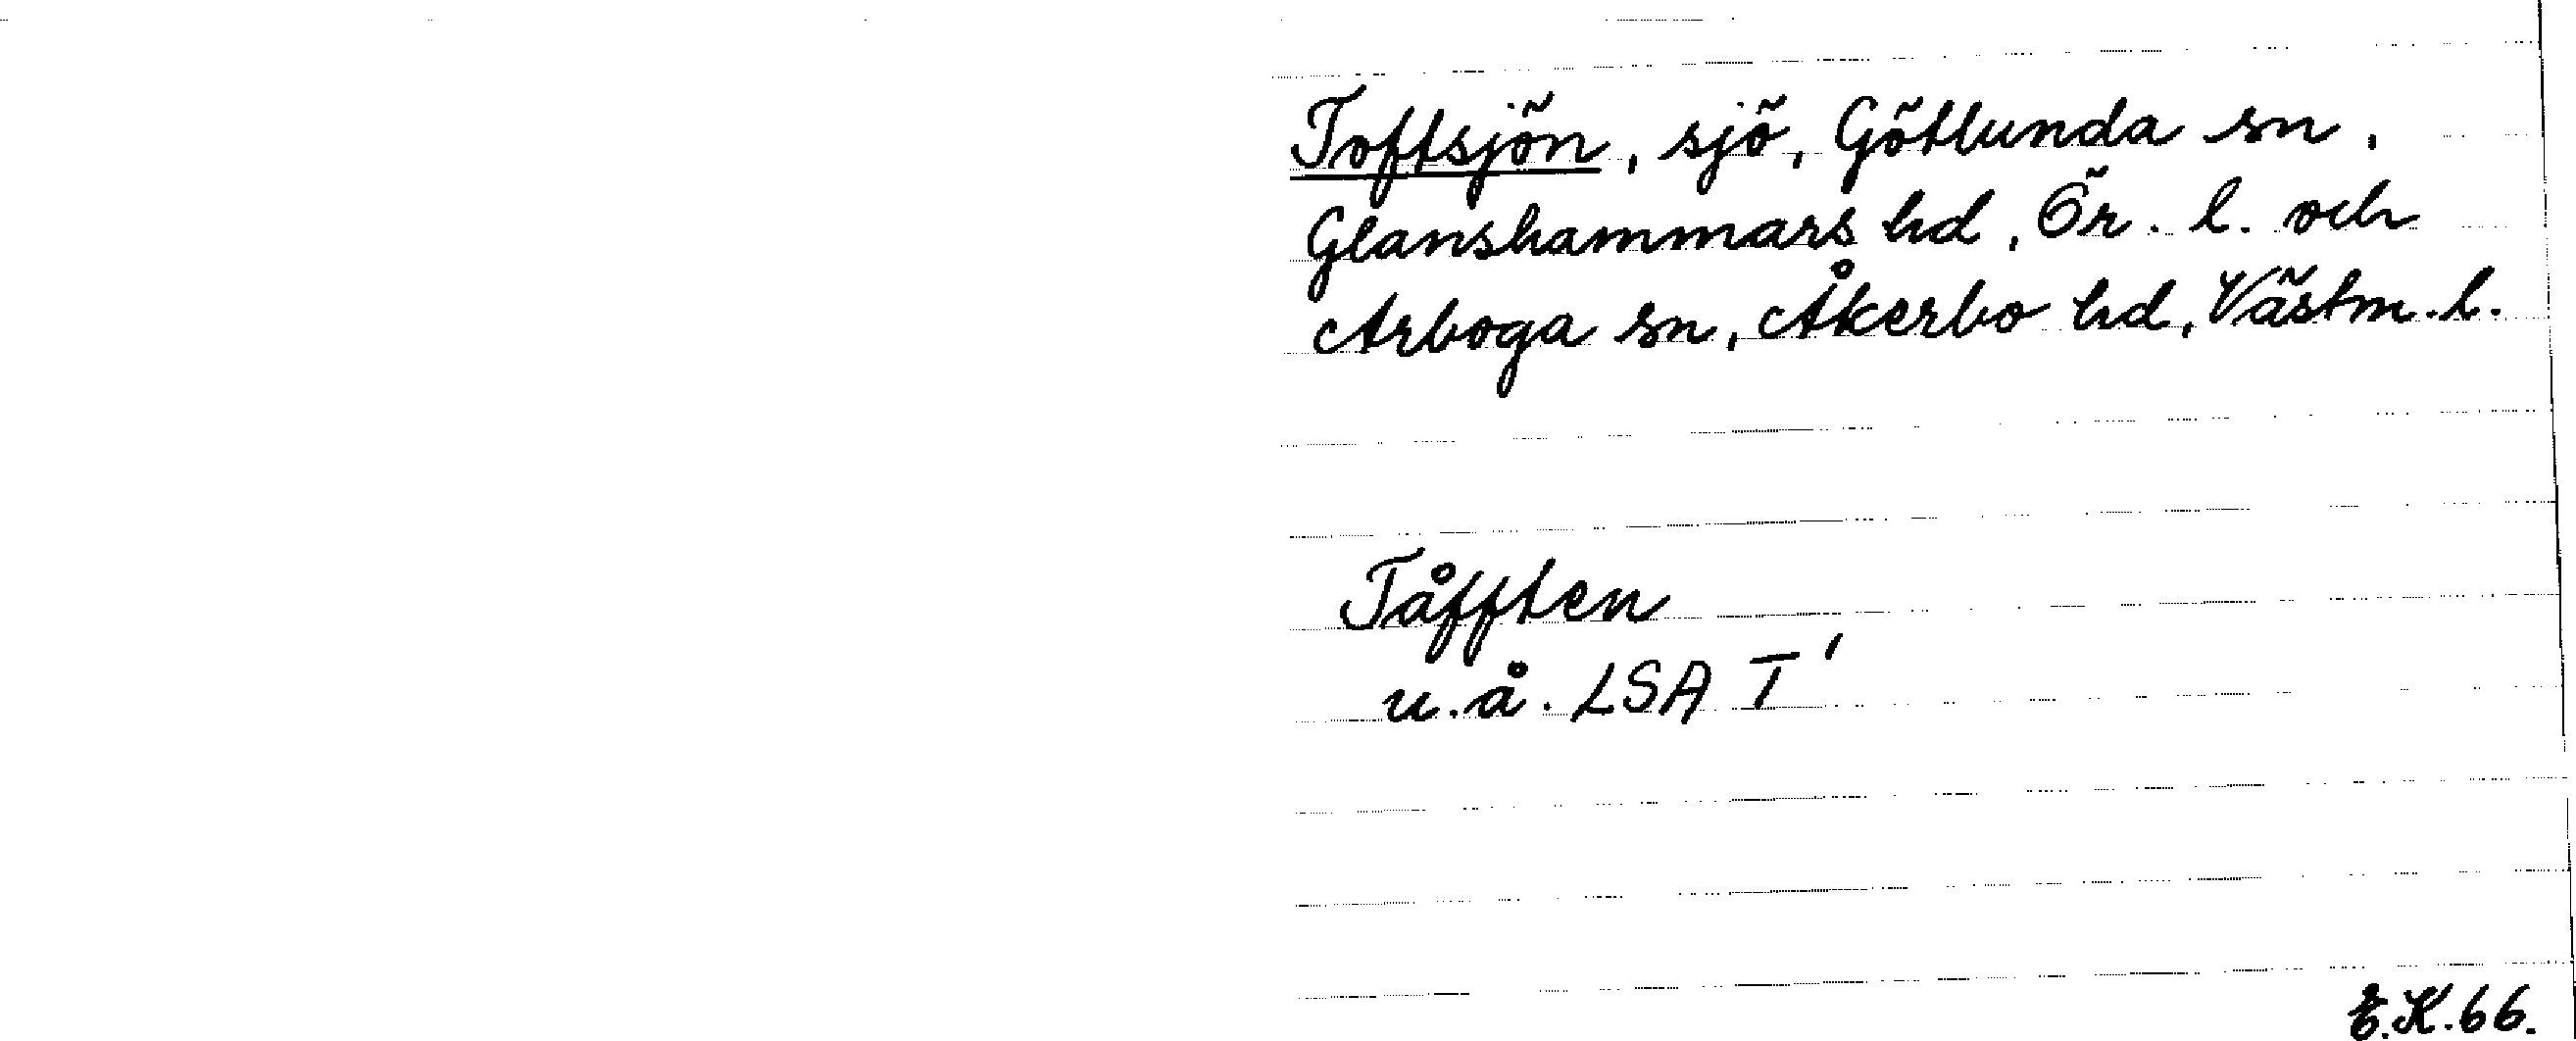 Toftsjön, sjö, Götlunda sn,
Glanshammars hd, Ör. l. och
Arboga sn, Åkerbo hd, Västm. l.
Tåfften
u. å. LSA T'
E.K.66.